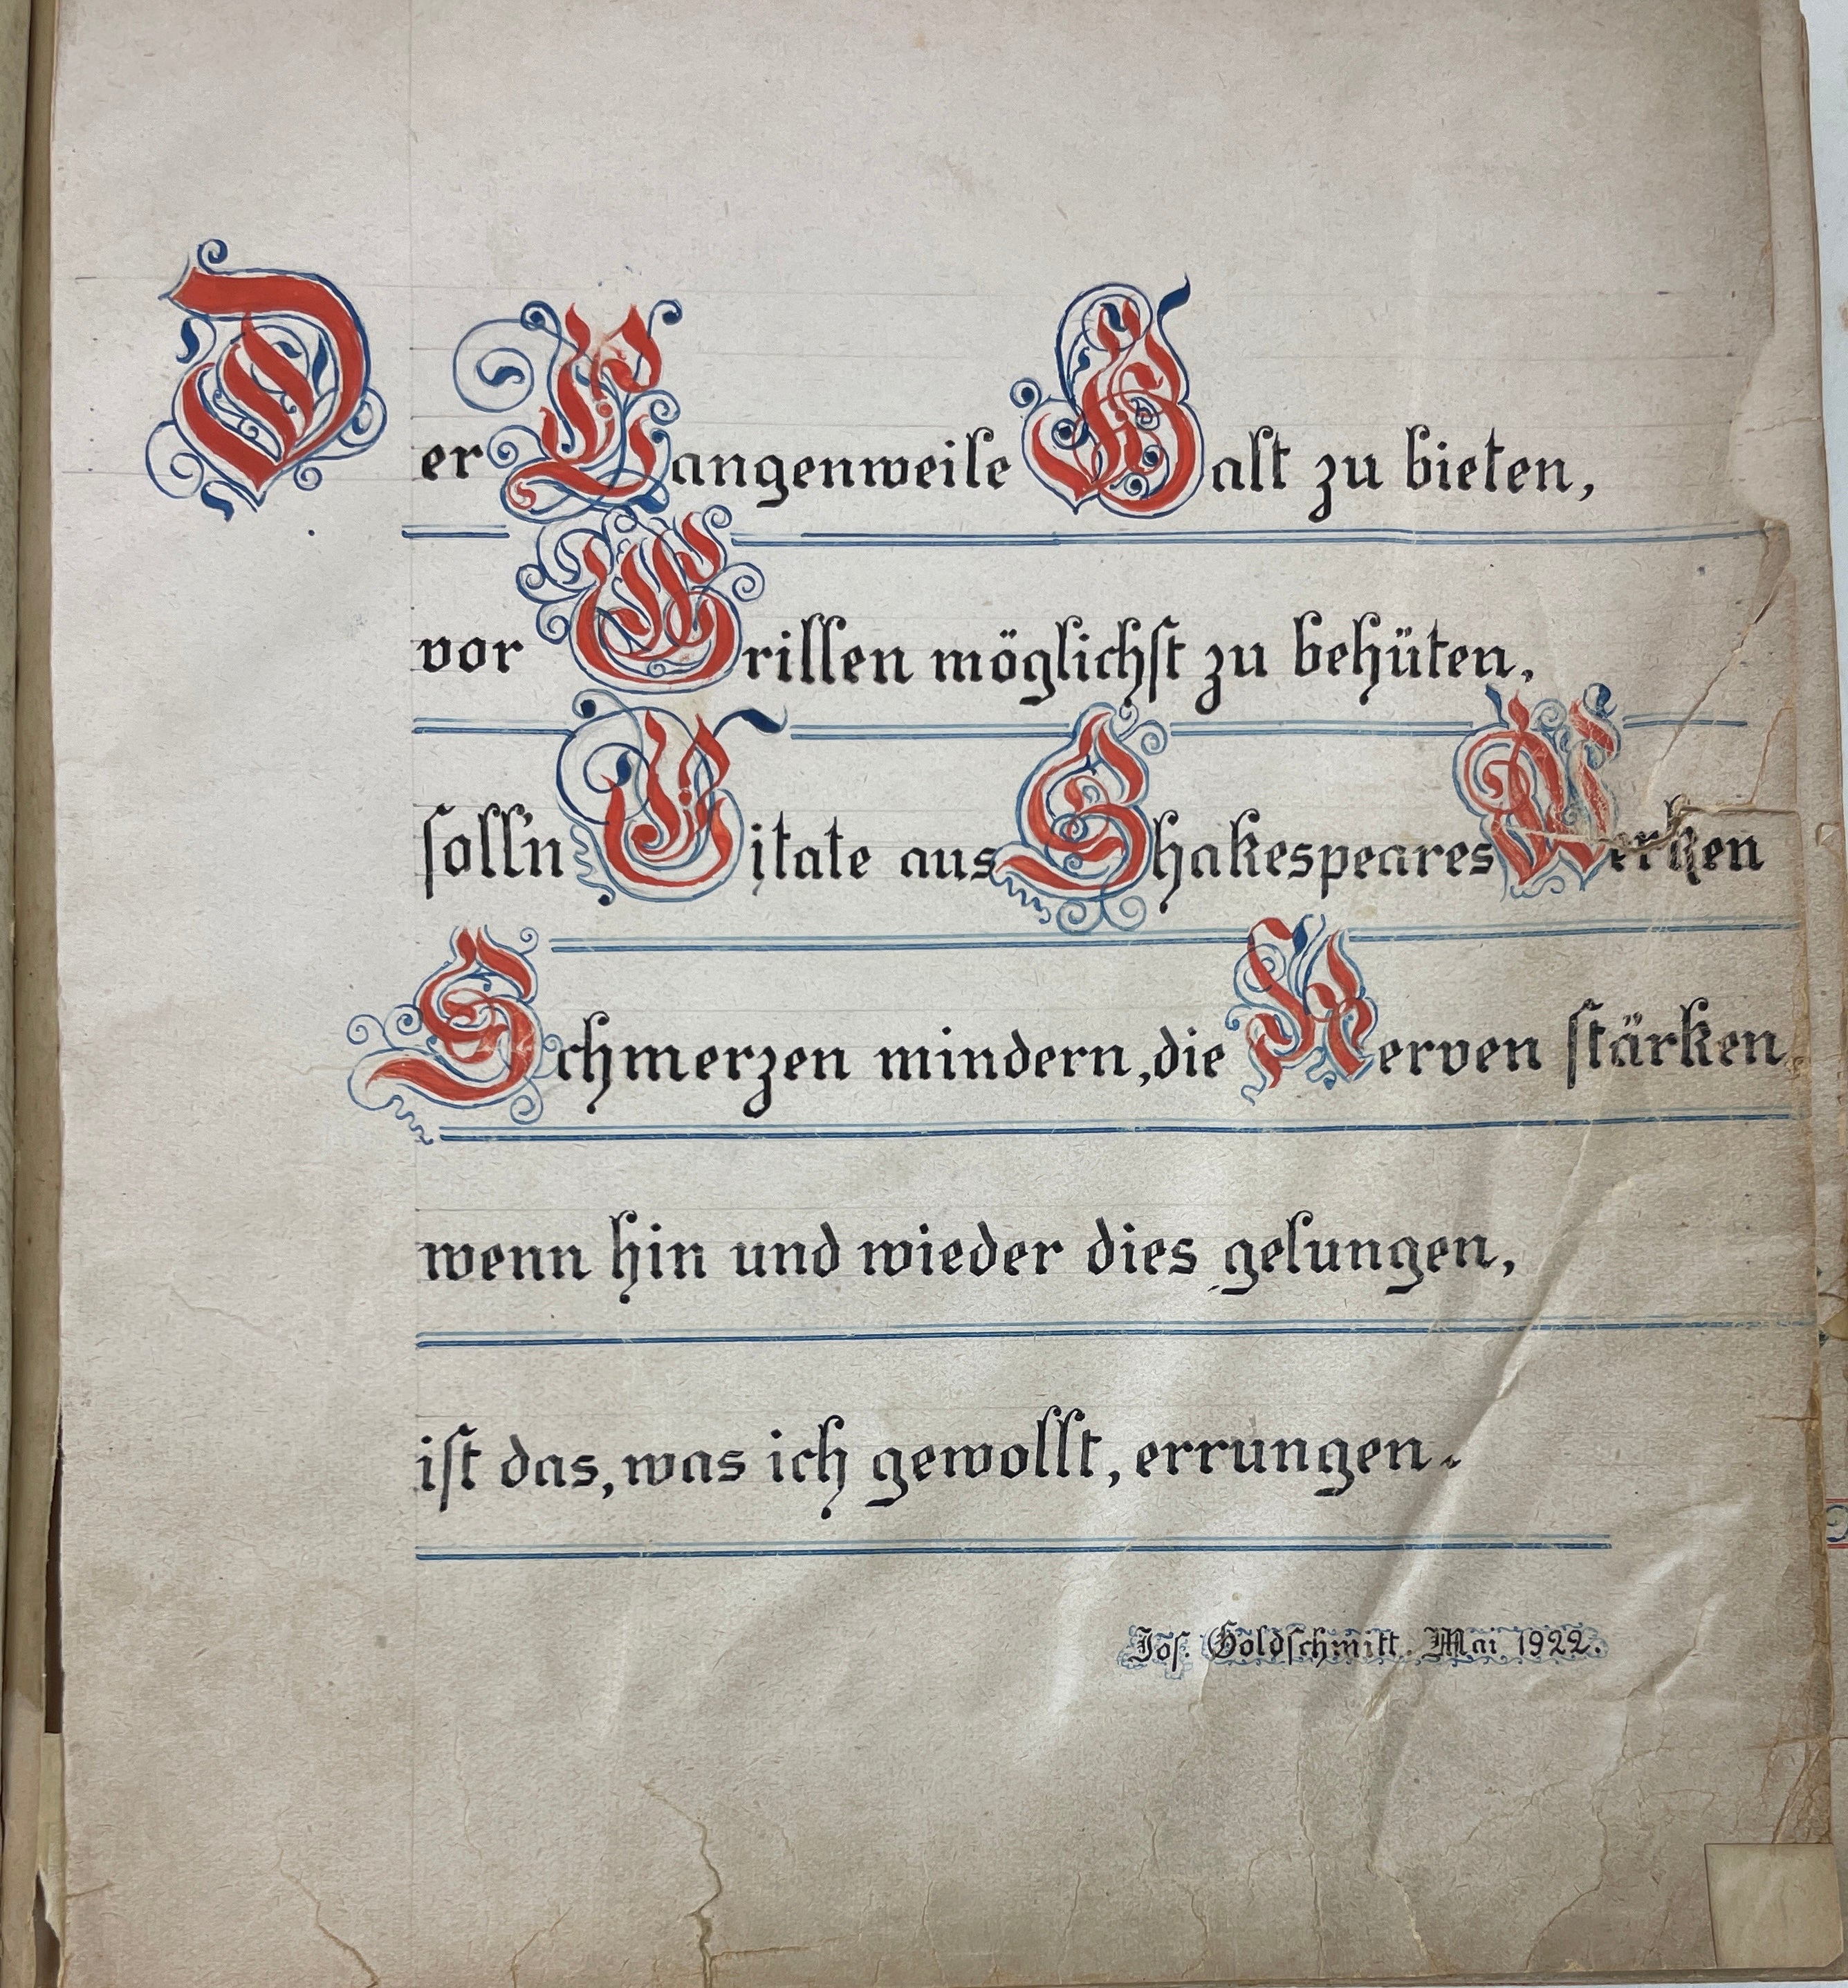 Der Langenweile Halt zu bieten,
vor Grillen möglichst zu behüten,
soll'n Citate aus Shakespeares Werken
Schmerzen mindern, die Nerven stärken,
wenn hin und wieder dies gelungen,
ist das, was ich gewollt, errungen.
Jos. Goldschmitt. Mai 1922.